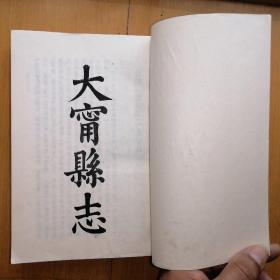 大甯縣志